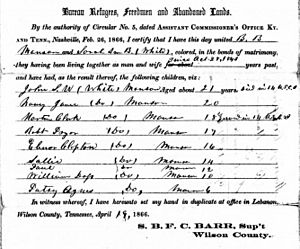 Bureau Refugees, Freedmen and Abandoned Lands.
By the authority of Circular No. 5, dated ASSISTANT COMMISSIONER'S OFFICE KY.
AND TENN., Nashville, Feb. 26, 1866, I certify that I have this day united B. B.
Manson and Sarah Ann B. (White), colored, in the bonds of matrimony,
they having been living together as man and wife since Oct 28, 1843
and have had, as the result thereof, the following children, viz:
John S. W (White) Manson 21
Nancy Jane (Do) Manson 20
Martin Clark (Do) Manson
(Do) Manson 17
(Do) Manson 16
Sallie (Do) Manson 14
(Do) Manson 12
William (Do) Manson
(Do) Manson 6
In witness whereof, I have hereunto set my hand in duplicate at office in Lebanon,
Wilson County, Tennessee, April 19, 1866.
S. B. F. C. BARR, Sup't
Wilson County.